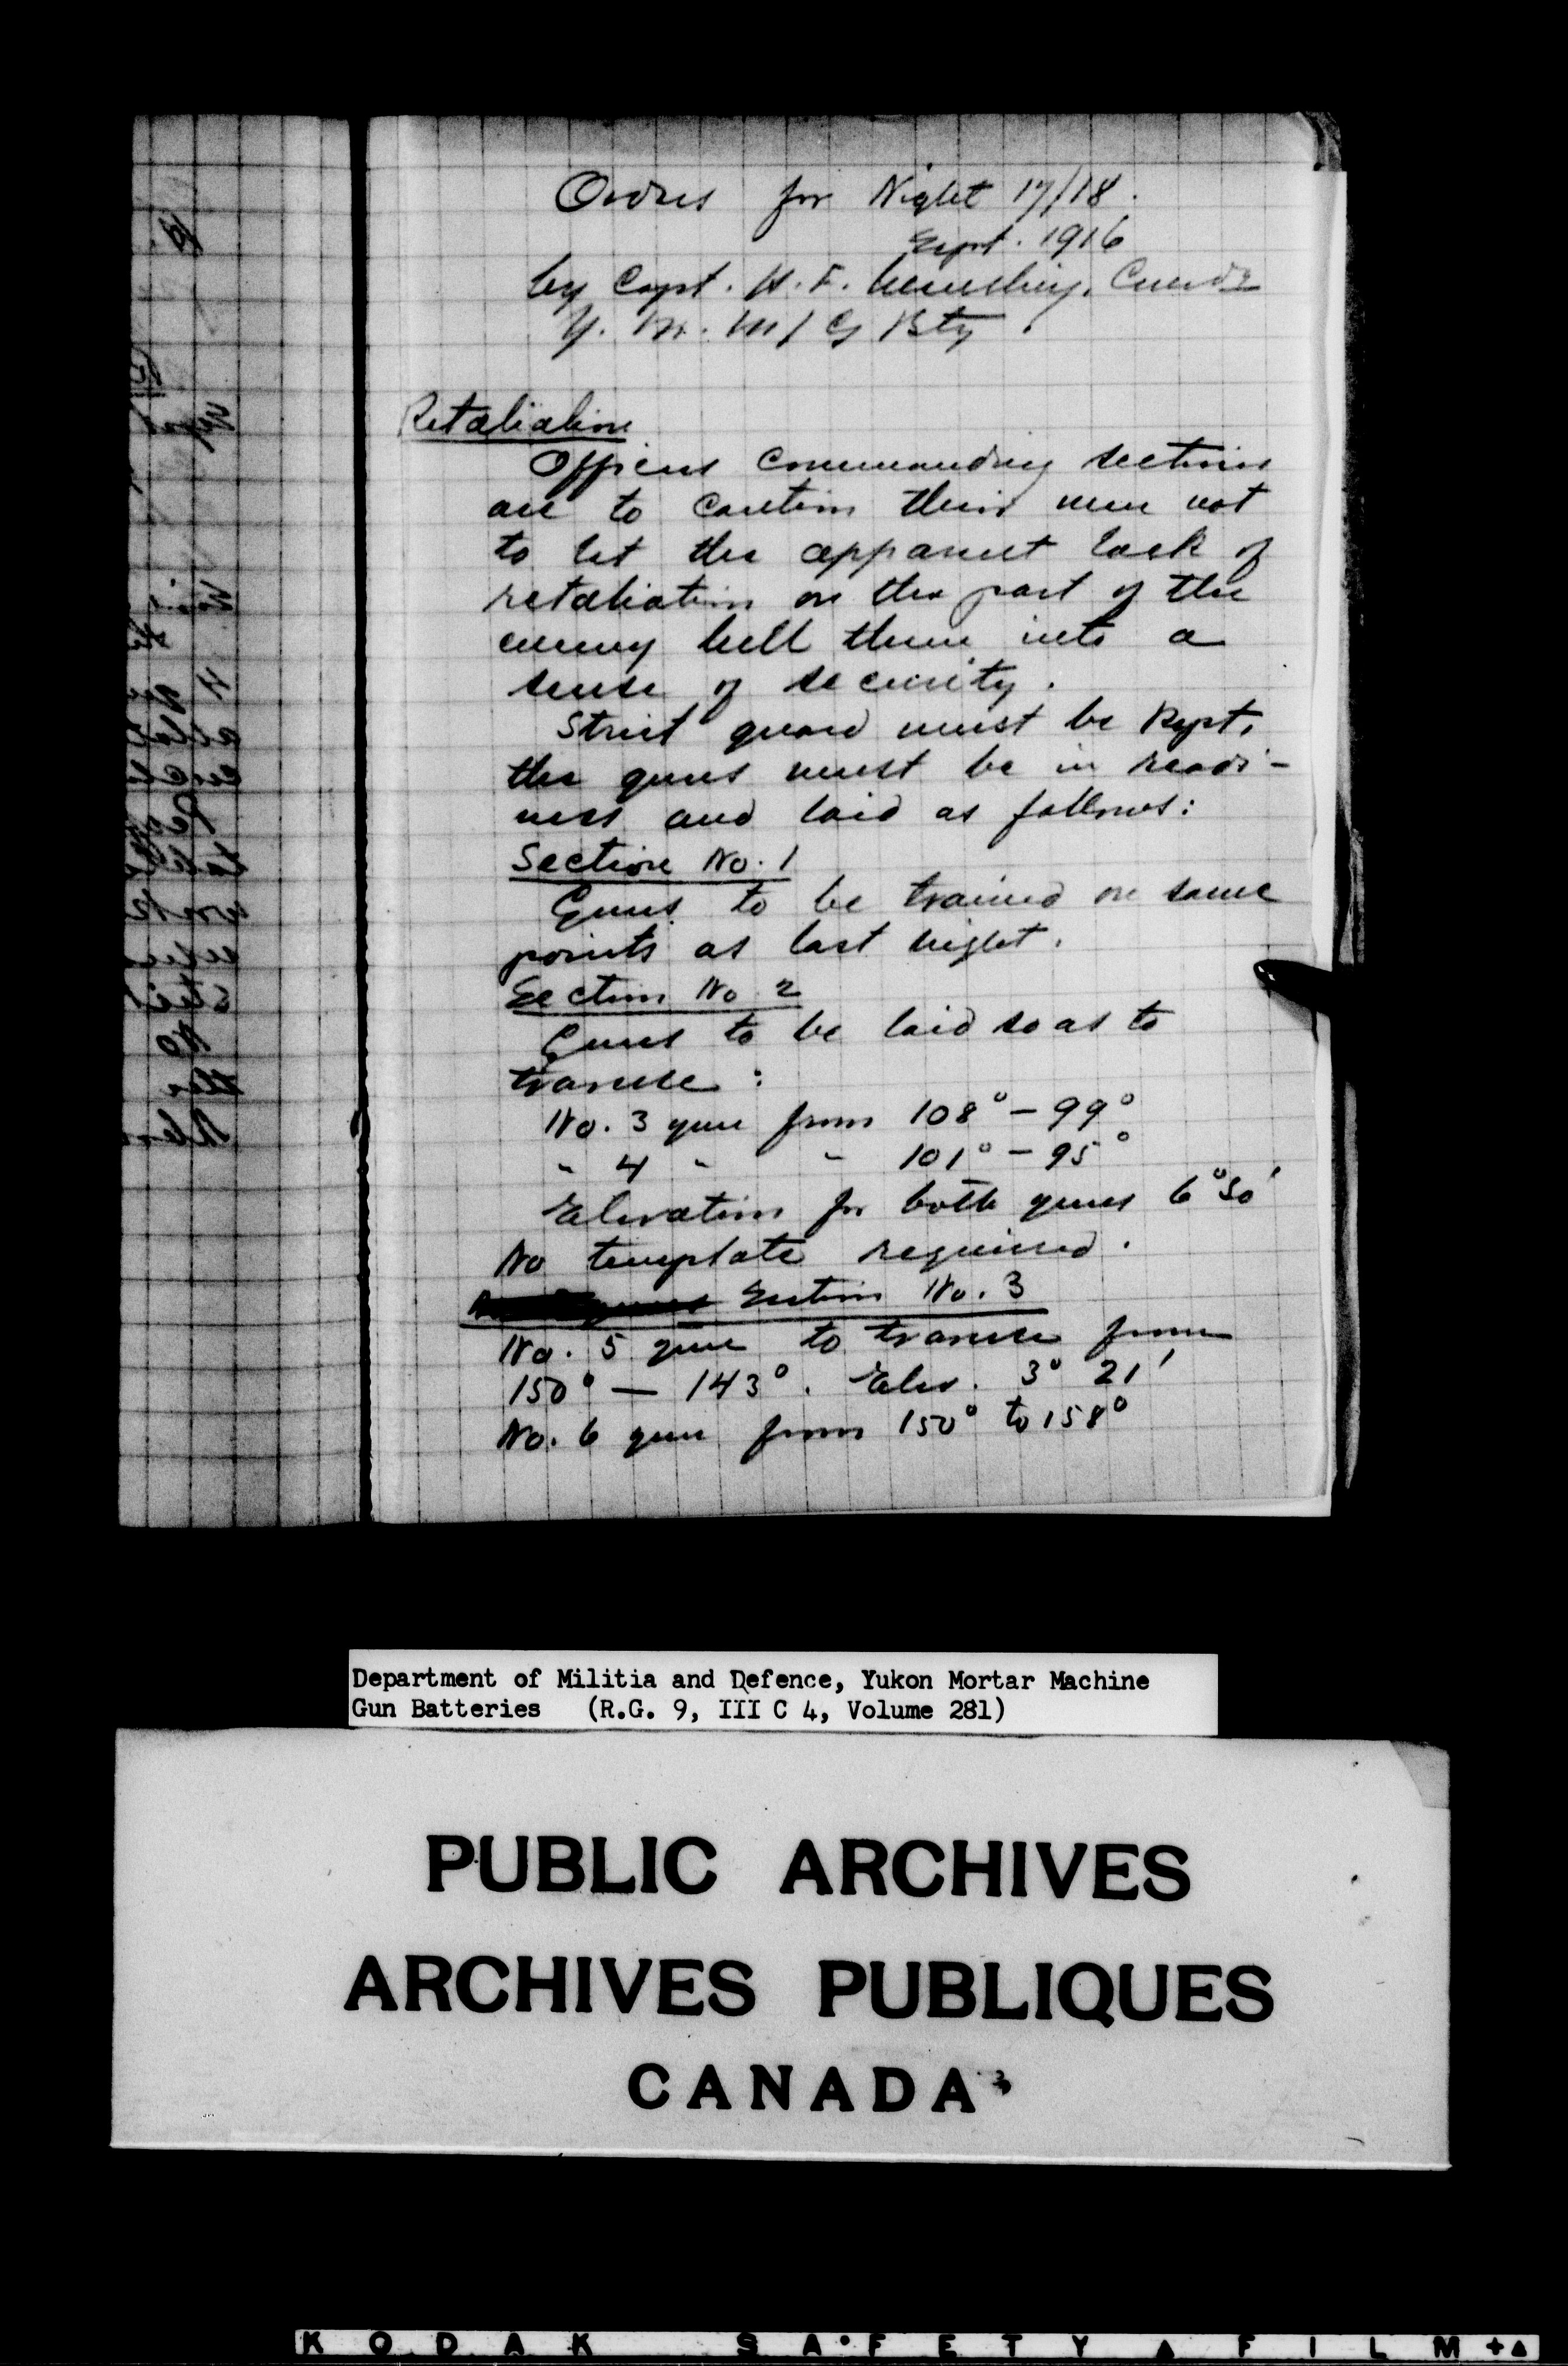 Orders for Night 17/18.
Sept. 1916
by Capt. H. F. Meurling. Cmndg
Y. M. M/G Bty.
Retaliation
Officers commanding sections
are to caution their men not
to let the apparent lack of
retaliation on the part of the
enemy lull them into a
sense of security.
Strict guard must be kept,
the guns must be in readi-
ness and laid as follows:
Section No. 1
Guns to be trained on same
points as last night.
Section No 2
Guns to be laid so as to
traverse:
No. 3 gun from 108° - 99°
" 4 " " 101° - 95°
Elevation for both guns 6° 50'
No template required.
Section No. 3
No. 5 gun to traverse from
150° — 143°. Elev. 3° 21'
No. 6 gun from 150° to 158°
Department of Militia and Defence, Yukon Mortar Machine
Gun Batteries (R.G. 9, III C 4, Volume 281)
PUBLIC ARCHIVES
ARCHIVES PUBLIQUES
CANADA
KODAK SAFETY FILM